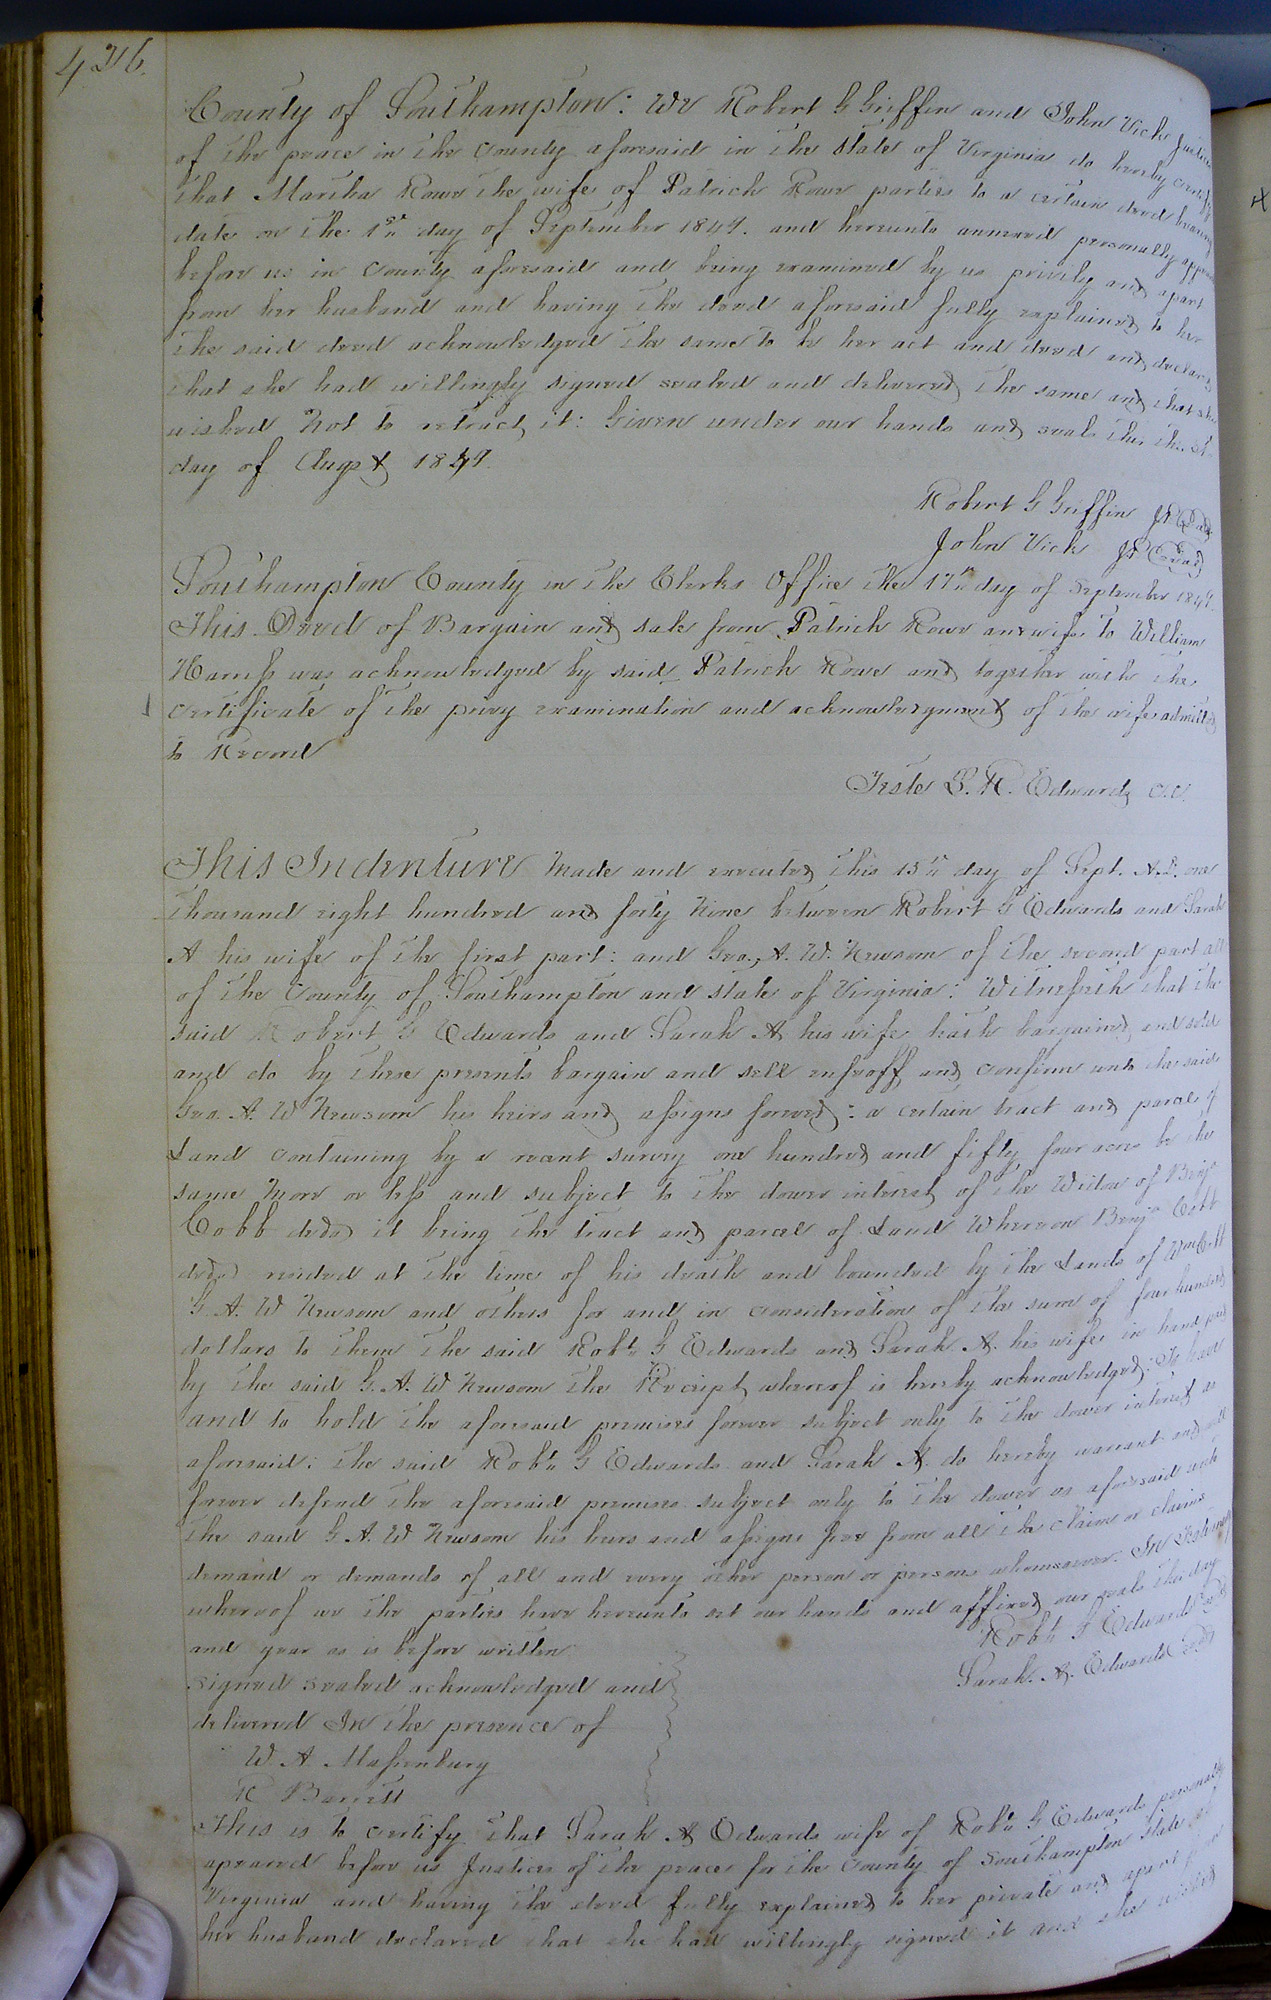 426.
County of Southampton: We Robert G Griffin and John Vick Justices
of the peace in the County aforesaid in the State of Virginia do hereby certify
that Martha Rowe the wife of Patrick Rowe parties to a certain deed bearing
date on the 1st day of September 1849. and hereunto annexed personally appeared
before us in County aforesaid and being examined by us privily and apart
from her husband and having the deed aforesaid fully explained to her
the said deed acknowledged the same to be her act and deed and declared
that she had willingly signed sealed and delivered the same and that she
wished Not to retract it: Given under our hands and seals this the
day of Augst 1849.
Robert G Griffin JP Seal
John Vick JP Seal
Southampton County in the Clerks Office the 17th day of September 1849.
This Deed of Bargain and sale from Patrick Rowe and wife to William
Harriss was acknowledged by said Patrick Rowe and together with the
certificate of the privy examination and acknowledgment of the wife admitted
to Record
Teste L. R. Edwards C.C.
This Indenture Made and executed this 15th day of Sept. A.D. one
thousand eight hundred and forty Nine between Robert G Edwards and Sarah
A his wife of the first part: and Geo. A. W. Newsom of the second part all
of the County of Southampton and state of Virginia: Witnesseth that the
said Robert G Edwards and Sarah A his wife hath bargained and sold
and do by these presents bargain and sell enfeoff and confirm unto the said
Geo. A. W Newsom his heirs and assigns forever: a certain tract and parcel of
Land containing by a recent survey one hundred and fifty four acres be the
same More or less and subject to the dower interest of the Widow of Benja
Cobb decd it being the tract and parcel of Land Whereon Benja Cobb
decd resided at the time of his death and bounded by the Lands of Wm Cobb
G. A. W Newsom and others for and in consideration of the sum of four hundred
dollars to them the said Robt G Edwards and Sarah A. his wife in hand paid
by the said G. A. W Newsom the Receipt whereof is hereby acknowledged: To have
and to hold the aforesaid premises forever subject only to the dower interest as
aforesaid: the said Robt G Edwards and Sarah A. do hereby warrant and will
forever defend the aforesaid premises subject only to the dower as aforesaid unto
the said G. A. W Newsom his heirs and assigns free from all the claim or claims
demand or demands of all and every other person or persons whomsoever. In Testimony
whereof we the parties have hereunto set our hands and affixed our seals the day
and year as is before written
Robt G Edwards Seal
Sarah. A. Edwards Seal
Signed Sealed acknowledged and
delivered In the presence of
W. A. Massenburg
R Barrett
This is to certify that Sarah A Edwards wife of Robt G Edwards personally
apeared before us Justices of the peace for the County of Southampton State of
Virginia and having the deed fully explained to her private and apart from
her husband declared that she had willingly signed it and she wished